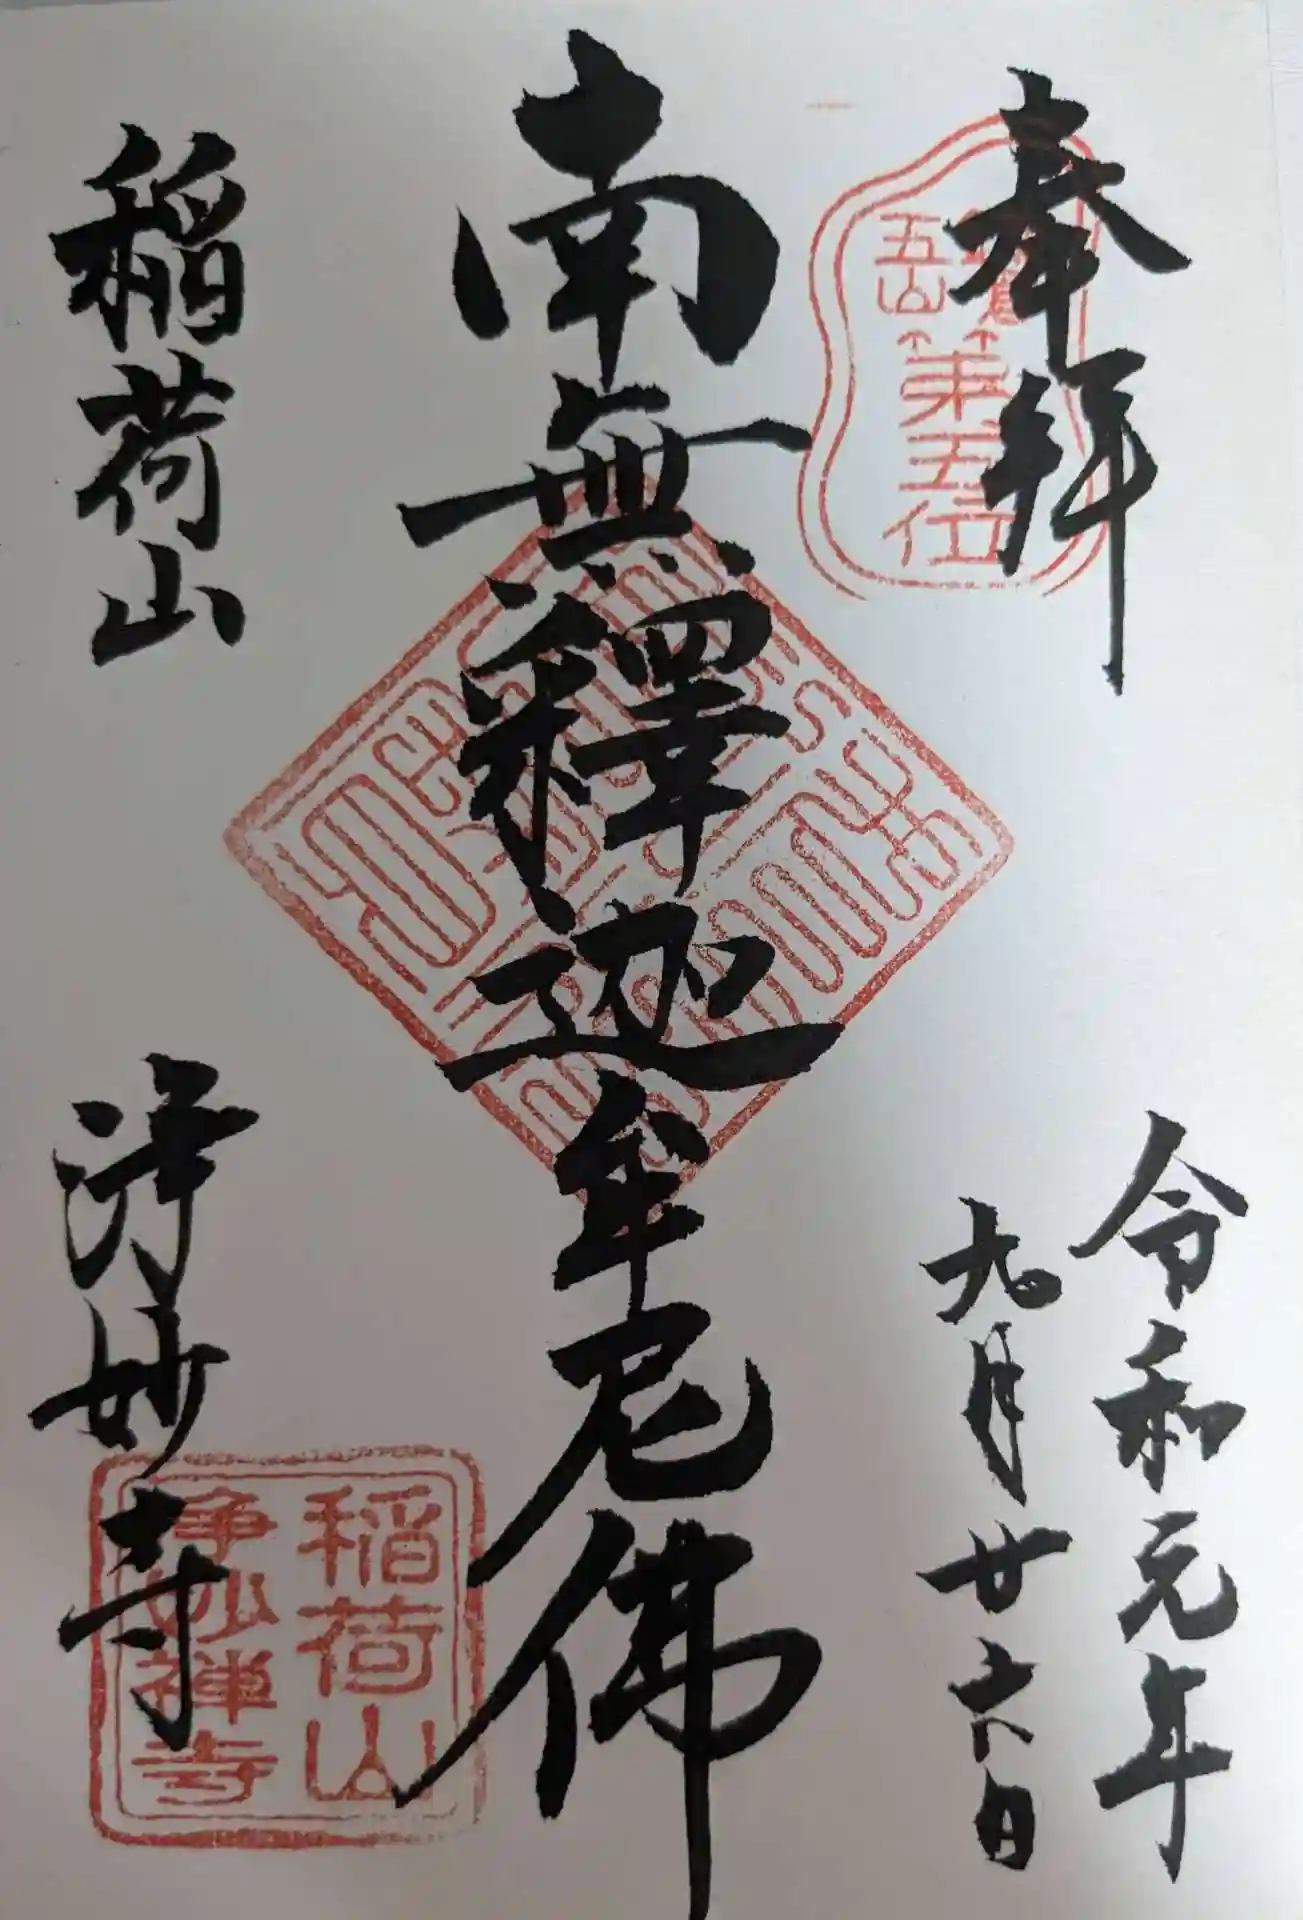 奉拜
令和元年
九月廿六日
五山
第五位
南無釋迦牟尼佛
稲荷山
浄妙寺
稲荷山
浄妙禅寺